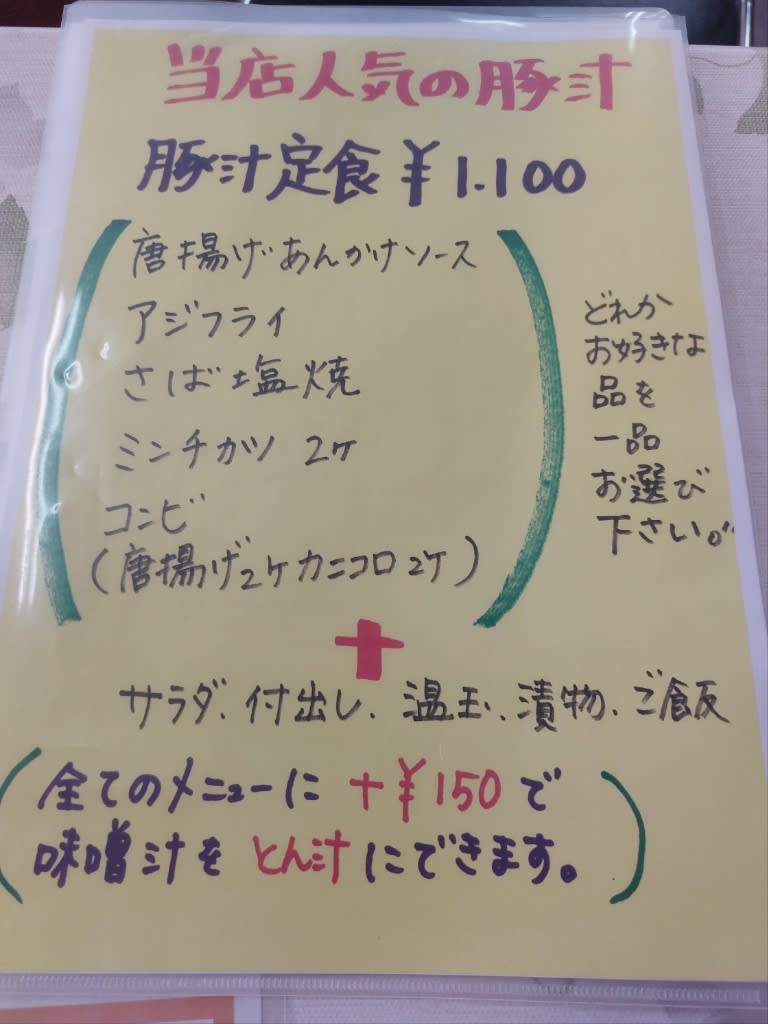 当店人気の豚汁
豚汁定食 ¥1.100
唐揚げあんかけソース
アジフライ
さば塩焼
ミンチカツ 2ケ
コンビ
(唐揚げ2ケカニコロ2ケ)
どれか
お好きな
品を
一品
お選び
下さい。
+
サラダ、付出し、温玉、漬物、ご飯
(全てのメニューに +¥150で
味噌汁をとん汁にできます。)